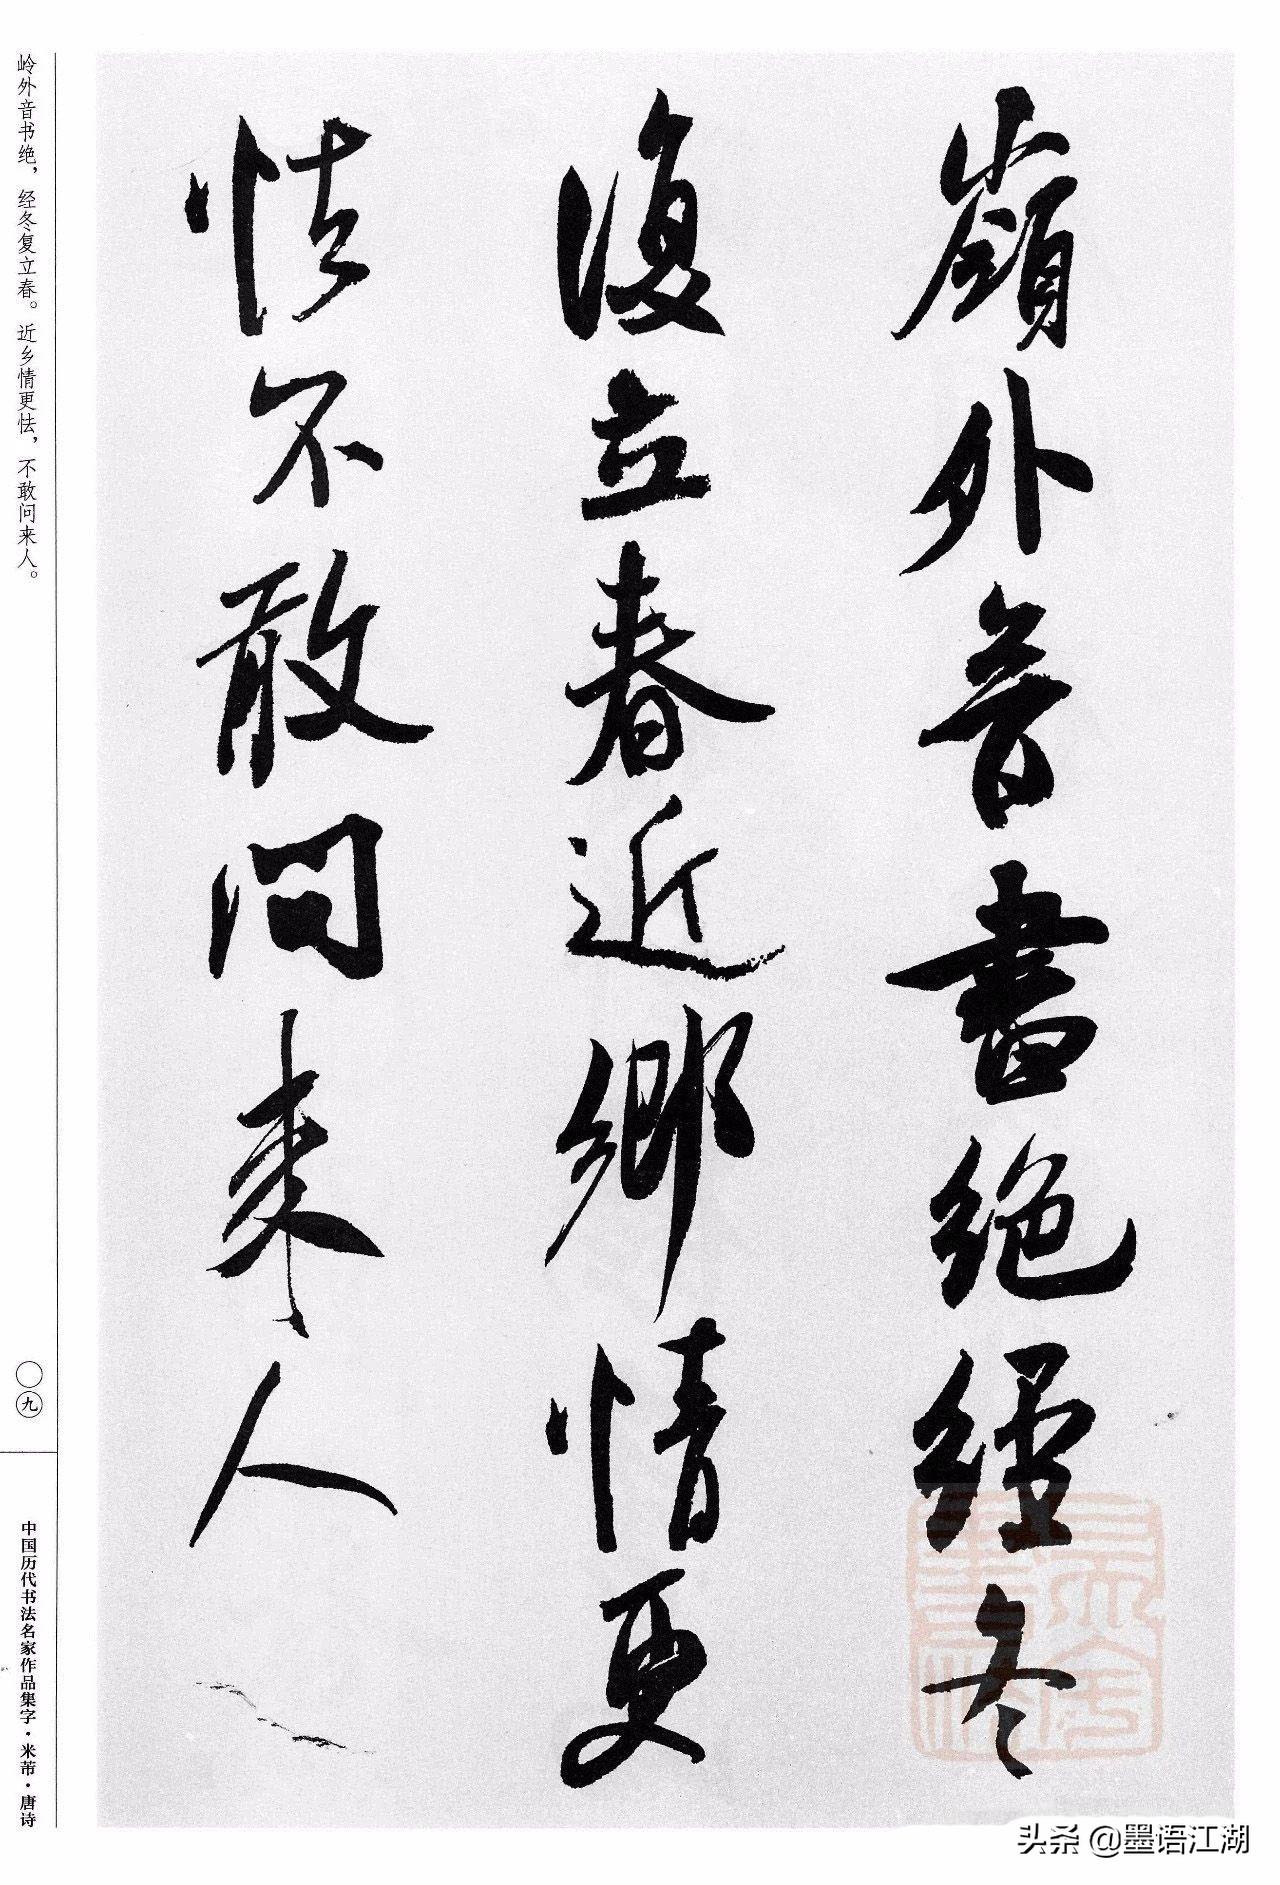 嶺外音書絕經冬
復立春近鄉情更
怯不敢問來人
岭外音书绝，经冬复立春。近乡情更怯，不敢问来人。
〇九
中国历代书法名家作品集字·米芾·唐诗
头条 @墨语江湖